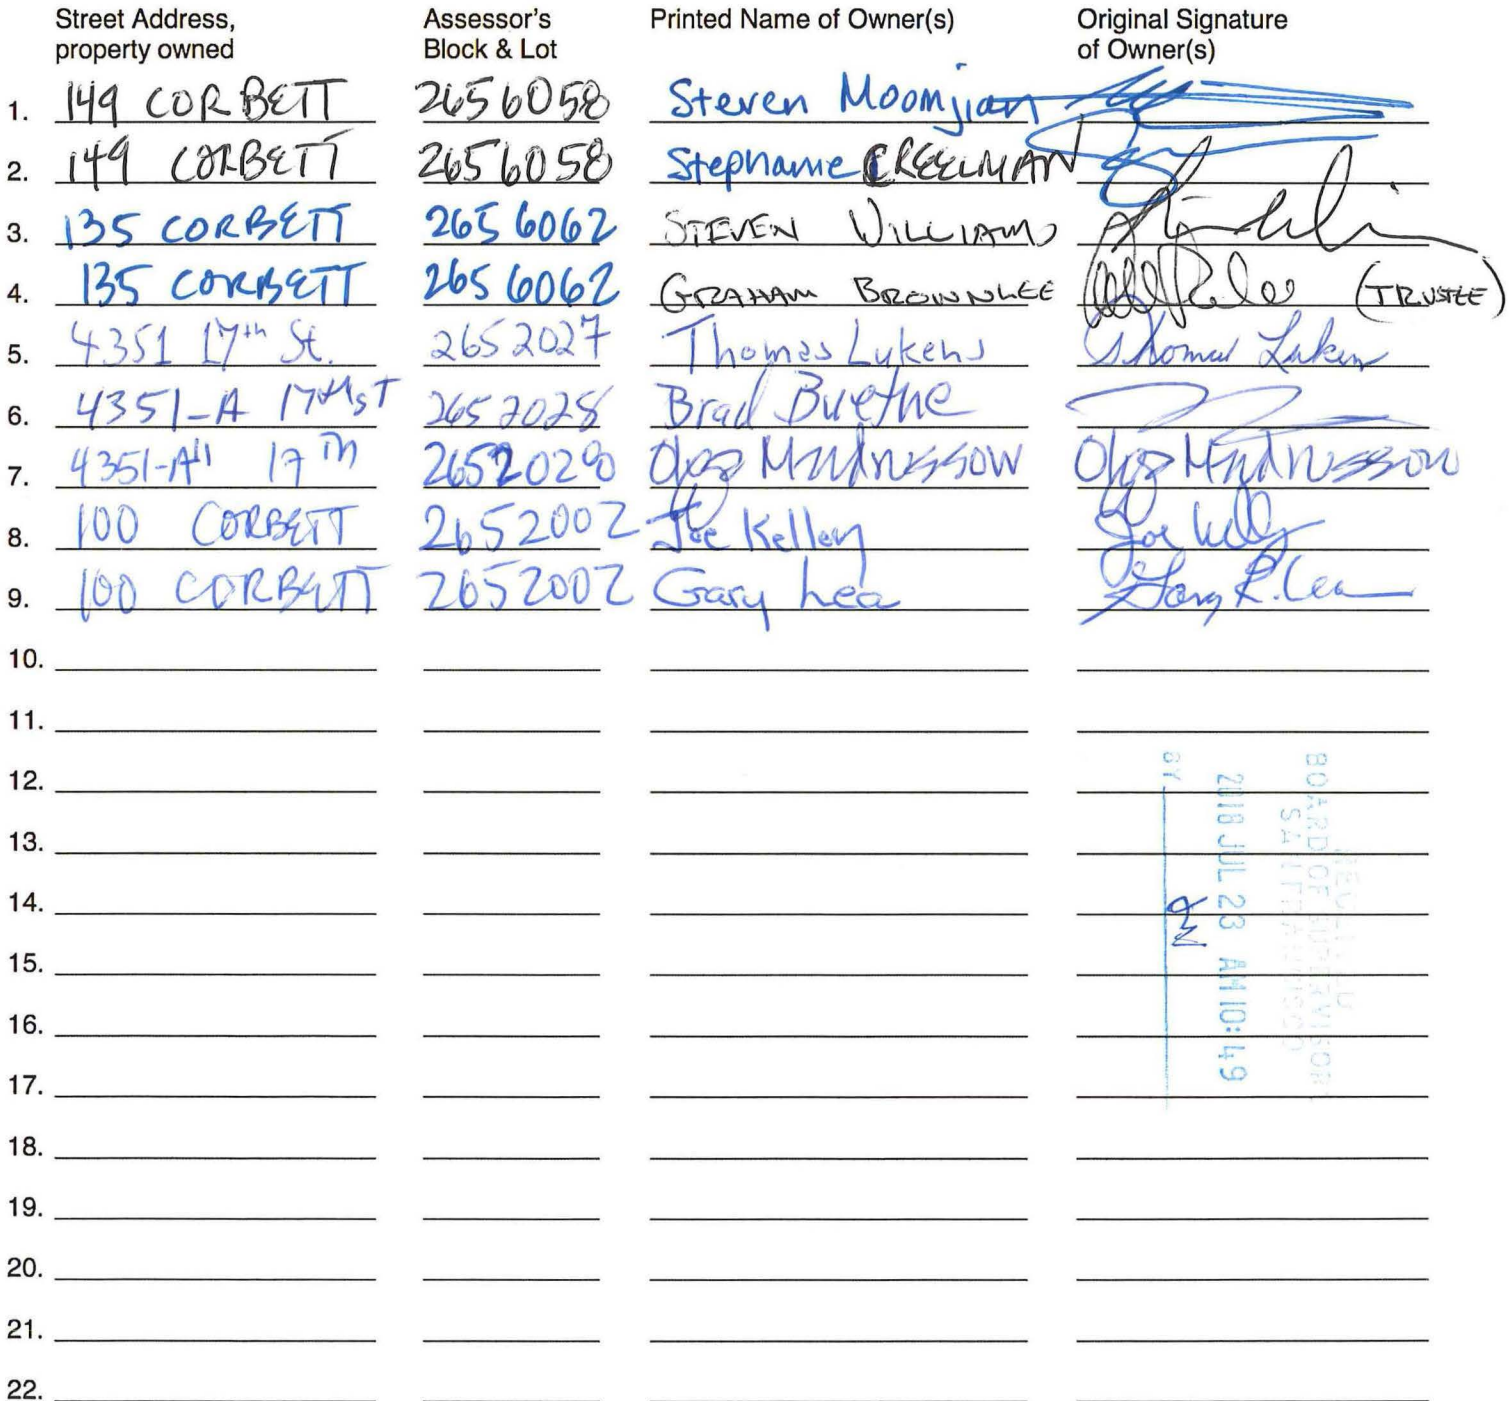 Street Address, property owned Assessor's Block & Lot Printed Name of Owner(s) Original Signature of Owner(s)
1. 149 CORBETT 2656058 Steven Moomjian
2. 149 CORBETT 2656058 Stephanie CREELMAN
3. 135 CORBETT 2656062 STEVEN WILLIAMS
4. 135 CORBETT 2656062 GRAHAM BROWNLEE (TRUSTEE)
5. 4351 17th St. 2652027 Thomas Lukens Thomas Lukens
6. 4351-A 17th ST 2652028 Brad Buethe
7. 4351-A 17th Olga Mandrussow Olga Mandrussow
8. 100 CORBETT 2652002 Joe Kelley Joe Kelley
9. 100 CORBETT 2652002 Gary Lea Gary R. Lea
10.
11.
12.
13.
14.
15.
16.
17.
18.
19.
20.
21.
22.
BOARD OF SUPERVISOR
SAN FRANCISCO
2018 JUL 23 AM 10:49
BY